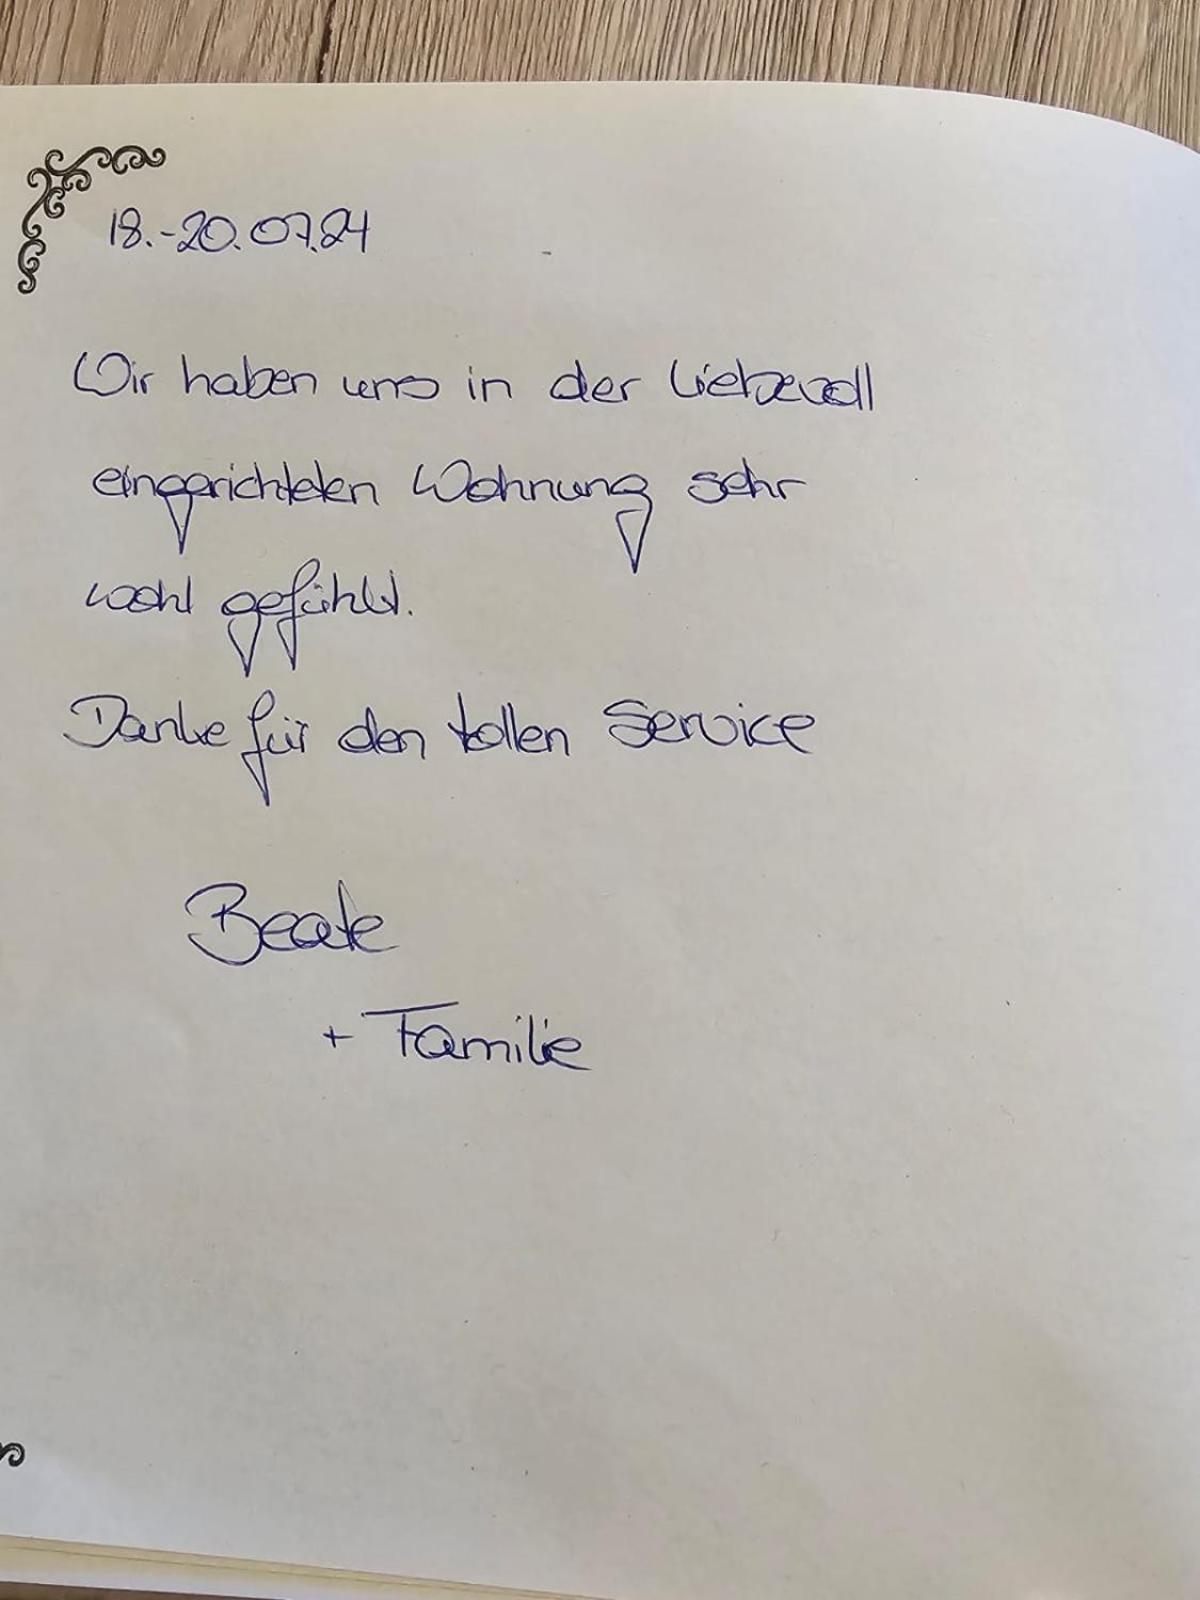 18.-20.07.24
Wir haben uns in der liebevoll
eingerichteten Wohnung sehr
wohl gefühlt.
Danke für den tollen Service
Beate
+ Familie